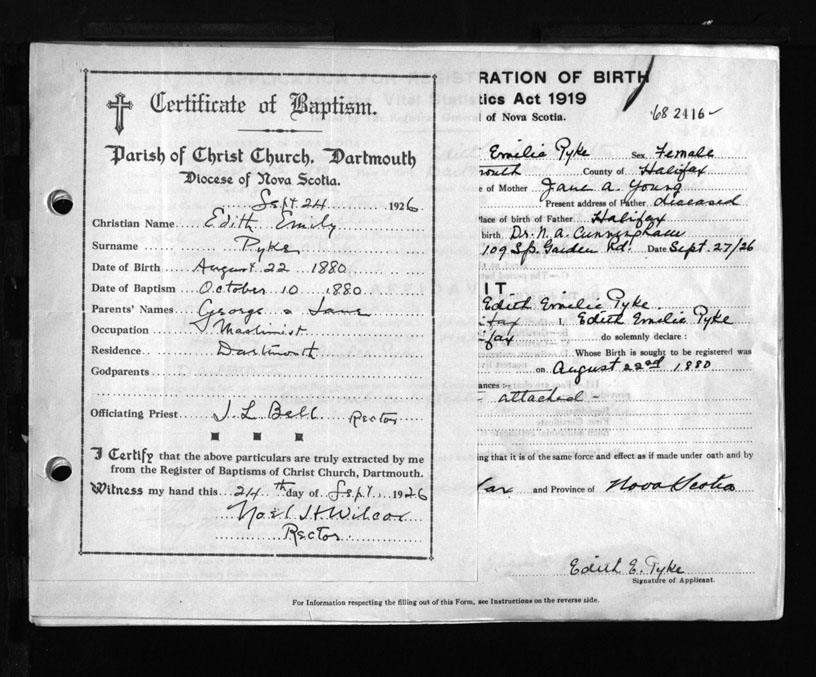 Certificate of Baptism.
Parish of Christ Church, Dartmouth
Diocese of Nova Scotia.
Sept. 24 1926
Christian Name Edith Emily
Surname Pyke
Date of Birth August 22 1880
Date of Baptism October 10 1880
Parents' Names George & Jane
Occupation Machinist
Residence Dartmouth
Godparents
Officiating Priest J. L. Bell Rector
I Certify that the above particulars are truly extracted by me
from the Register of Baptisms of Christ Church, Dartmouth.
Witness my hand this 24th day of Sept. 1926
Noel H. Wilcox
Rector
RATION OF BIRTH
tics Act 1919
of Nova Scotia.
68 2416
Emilie Pyke Sex Female
outh County of Halifax
e of Mother Jane A. Young
Present address of Father diseased
lace of birth of Father Halifax
birth Dr. N. A. Cunningham
109 Sp. Garden Rd. Date Sept. 27/26
IT
Edith Emilie Pyke
ifax I, Edith Emilie Pyke
ifax do solemnly declare:
Whose Birth is sought to be registered was
on August 22nd 1880
ances:-
attached -
ing that it is of the same force and effect as if made under oath and by
fax and Province of Nova Scotia
Edith E. Pyke
Signature of Applicant.
For Information respecting the filling out of this Form, see Instructions on the reverse side.